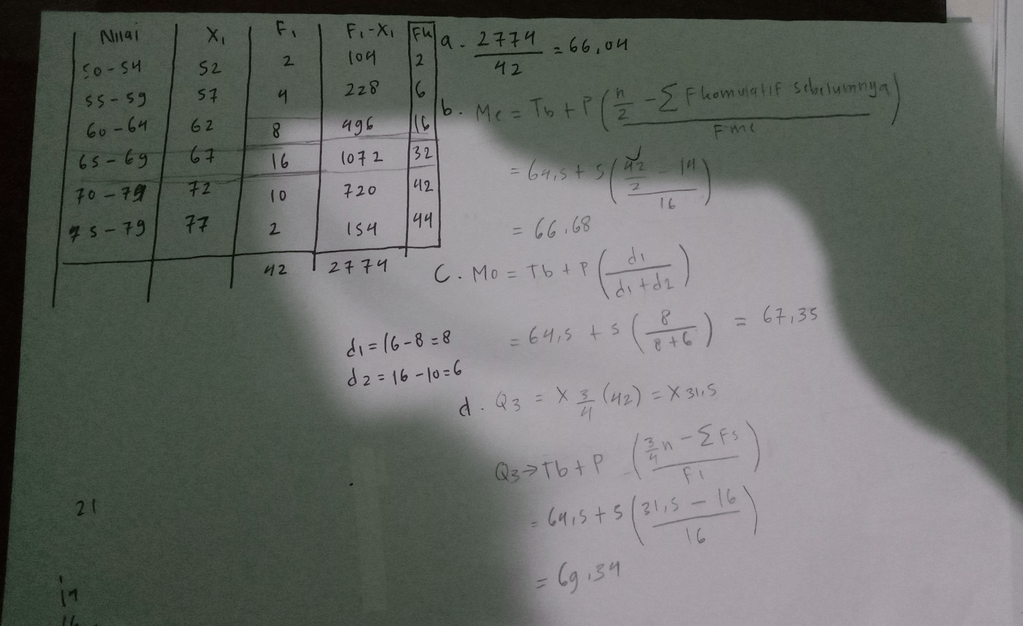 Nilai X₁ F₁ F₁-X₁ Fk
50-54 52 2 104 2
55-59 57 4 228 6
60-64 62 8 496 16
65-69 67 16 1072 32
70-74 72 10 720 42
75-79 77 2 154 44
42 2774
a. 2774/42 = 66,04
b. Me = Tb + P (n/2 - Σ Fkomulatif sebelumnya / Fme)
= 64,5 + 5 (42/2 - 14 / 16)
= 66,68
C. Mo = Tb + P (d1 / d1+d2)
d1 = 16-8 = 8
d2 = 16-10 = 6
= 64,5 + 5 (8 / 8+6) = 67,35
d. Q3 = X 3/4 (42) = X 31,5
Q3 → Tb + P (3/4 n - Σ Fs / Fi)
= 64,5 + 5 (31,5 - 16 / 16)
= 69,34
21